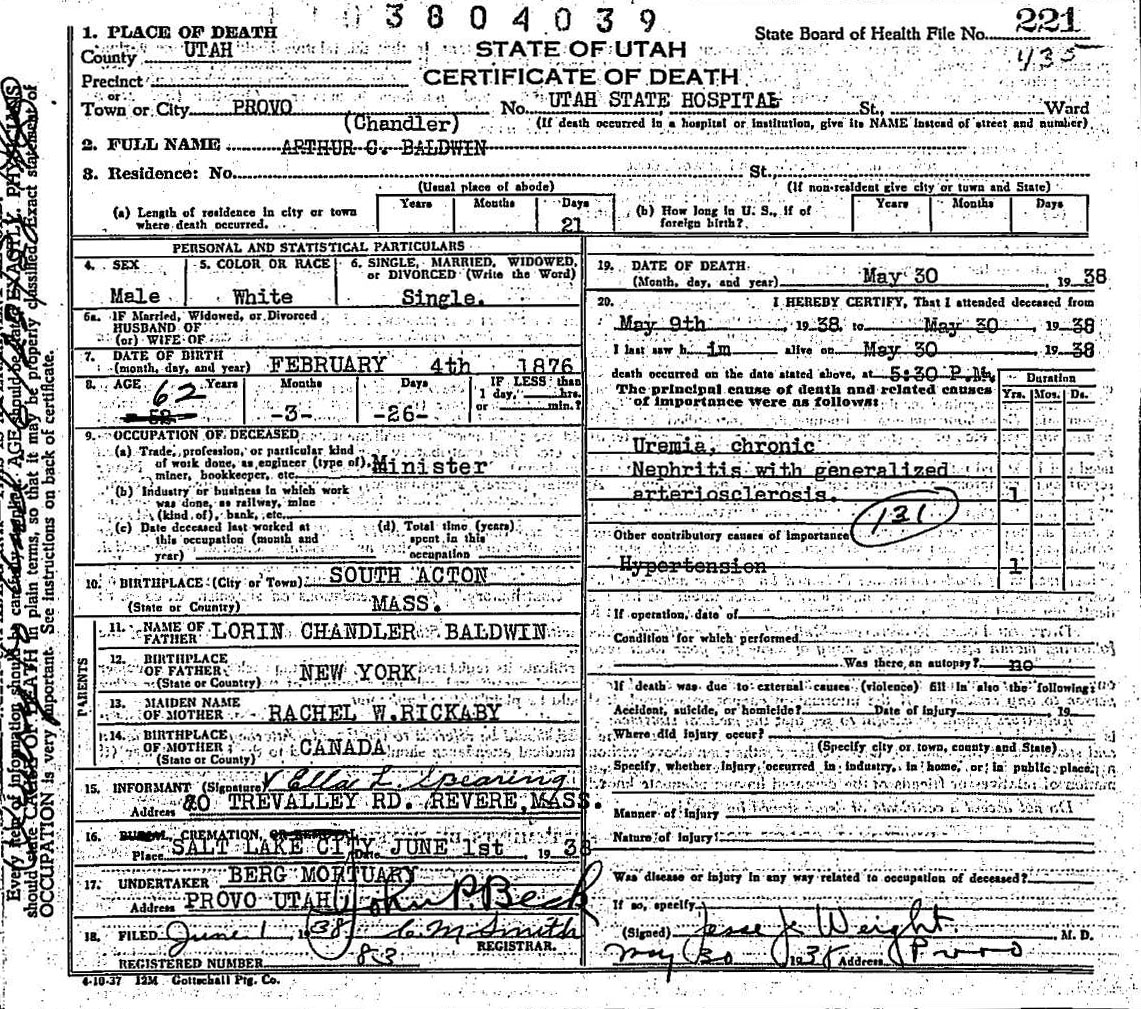 3804039
1. PLACE OF DEATH
State Board of Health File No. 221
County UTAH
STATE OF UTAH
435
Precinct
CERTIFICATE OF DEATH
or
Town or City PROVO No. UTAH STATE HOSPITAL St., Ward
(Chandler) (If death occurred in a hospital or institution, give its NAME instead of street and number)
2. FULL NAME ARTHUR C. BALDWIN
3. Residence: No. St.,
(Usual place of abode) (If non-resident give city or town and State)
(a) Length of residence in city or town where death occurred. Years Months Days 21
(b) How long in U. S., if of foreign birth? Years Months Days
PERSONAL AND STATISTICAL PARTICULARS
4. SEX Male
5. COLOR OR RACE White
6. SINGLE, MARRIED, WIDOWED, or DIVORCED (Write the Word) Single.
6a. IF Married, Widowed, or Divorced
HUSBAND OF
(or) WIFE OF
7. DATE OF BIRTH
(month, day, and year) FEBRUARY 4th 1876
8. AGE 62 Years Months -3- Days -26- IF LESS than 1 day, hrs. or min.?
9. OCCUPATION OF DECEASED
(a) Trade, profession, or particular kind
of work done, as engineer (type of), Minister
miner, bookkeeper, etc.
(b) Industry or business in which work
was done, as railway, mine
(kind of), bank, etc.
(c) Date deceased last worked at
this occupation (month and
year)
(d) Total time (years)
spent in this
occupation
10. BIRTHPLACE (City or Town) SOUTH ACTON
(State or Country) MASS.
PARENTS
11. NAME OF
FATHER LORIN CHANDLER BALDWIN
12. BIRTHPLACE
OF FATHER NEW YORK
(State or Country)
13. MAIDEN NAME
OF MOTHER RACHEL W. RICKABY
14. BIRTHPLACE
OF MOTHER CANADA
(State or Country)
15. INFORMANT (Signature) Ella L. Spearing
Address 20 TREVALLEY RD. REVERE, MASS.
16. BURIAL, CREMATION, OR REMOVAL
Place SALT LAKE CITY Date JUNE 1st, 1938
17. UNDERTAKER BERG MORTUARY
Address PROVO UTAH John P. Beck
18. FILED June 1, 1938 C. M. Smith
REGISTRAR.
REGISTERED NUMBER 83
4-10-37 12M Gottschall Ptg. Co.
19. DATE OF DEATH
(Month, day, and year) May 30, 1938
20. I HEREBY CERTIFY, That I attended deceased from
May 9th, 1938, to May 30, 1938
I last saw him alive on May 30, 1938
death occurred on the date stated above, at 5:30 P.M.
The principal cause of death and related causes
of importance were as follows:
Duration
Yrs. Mos. Ds.
Uremia, chronic
Nephritis with generalized
arteriosclerosis. 1
131
Other contributory causes of importance
Hypertension 1
If operation, date of
Condition for which performed
Was there an autopsy? no
If death was due to external causes (violence) fill in also the following:
Accident, suicide, or homicide? Date of injury 19
Where did injury occur?
(Specify city or town, county and State)
Specify, whether injury occurred in industry, in home, or in public place,
Manner of injury
Nature of injury
Was disease or injury in any way related to occupation of deceased?
If so, specify
(Signed) Jesse J. Weight M. D.
May 30 1938 Address Provo
should state CAUSE OF DEATH in plain terms, so that it may be properly classified. Exact statement of
OCCUPATION is very important. See instructions on back of certificate.